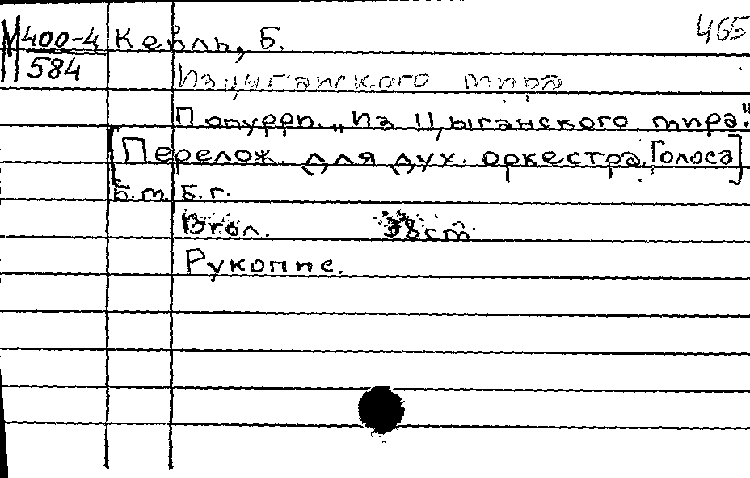 465
М 400-4 Кевль, Б.
584
Из цыганского мира
Попурри. „Из цыганского мира."
[Перелож. для дух. оркестра. [голоса]
Б.м. Б.г.
гол. 38 cm
Рукопис.